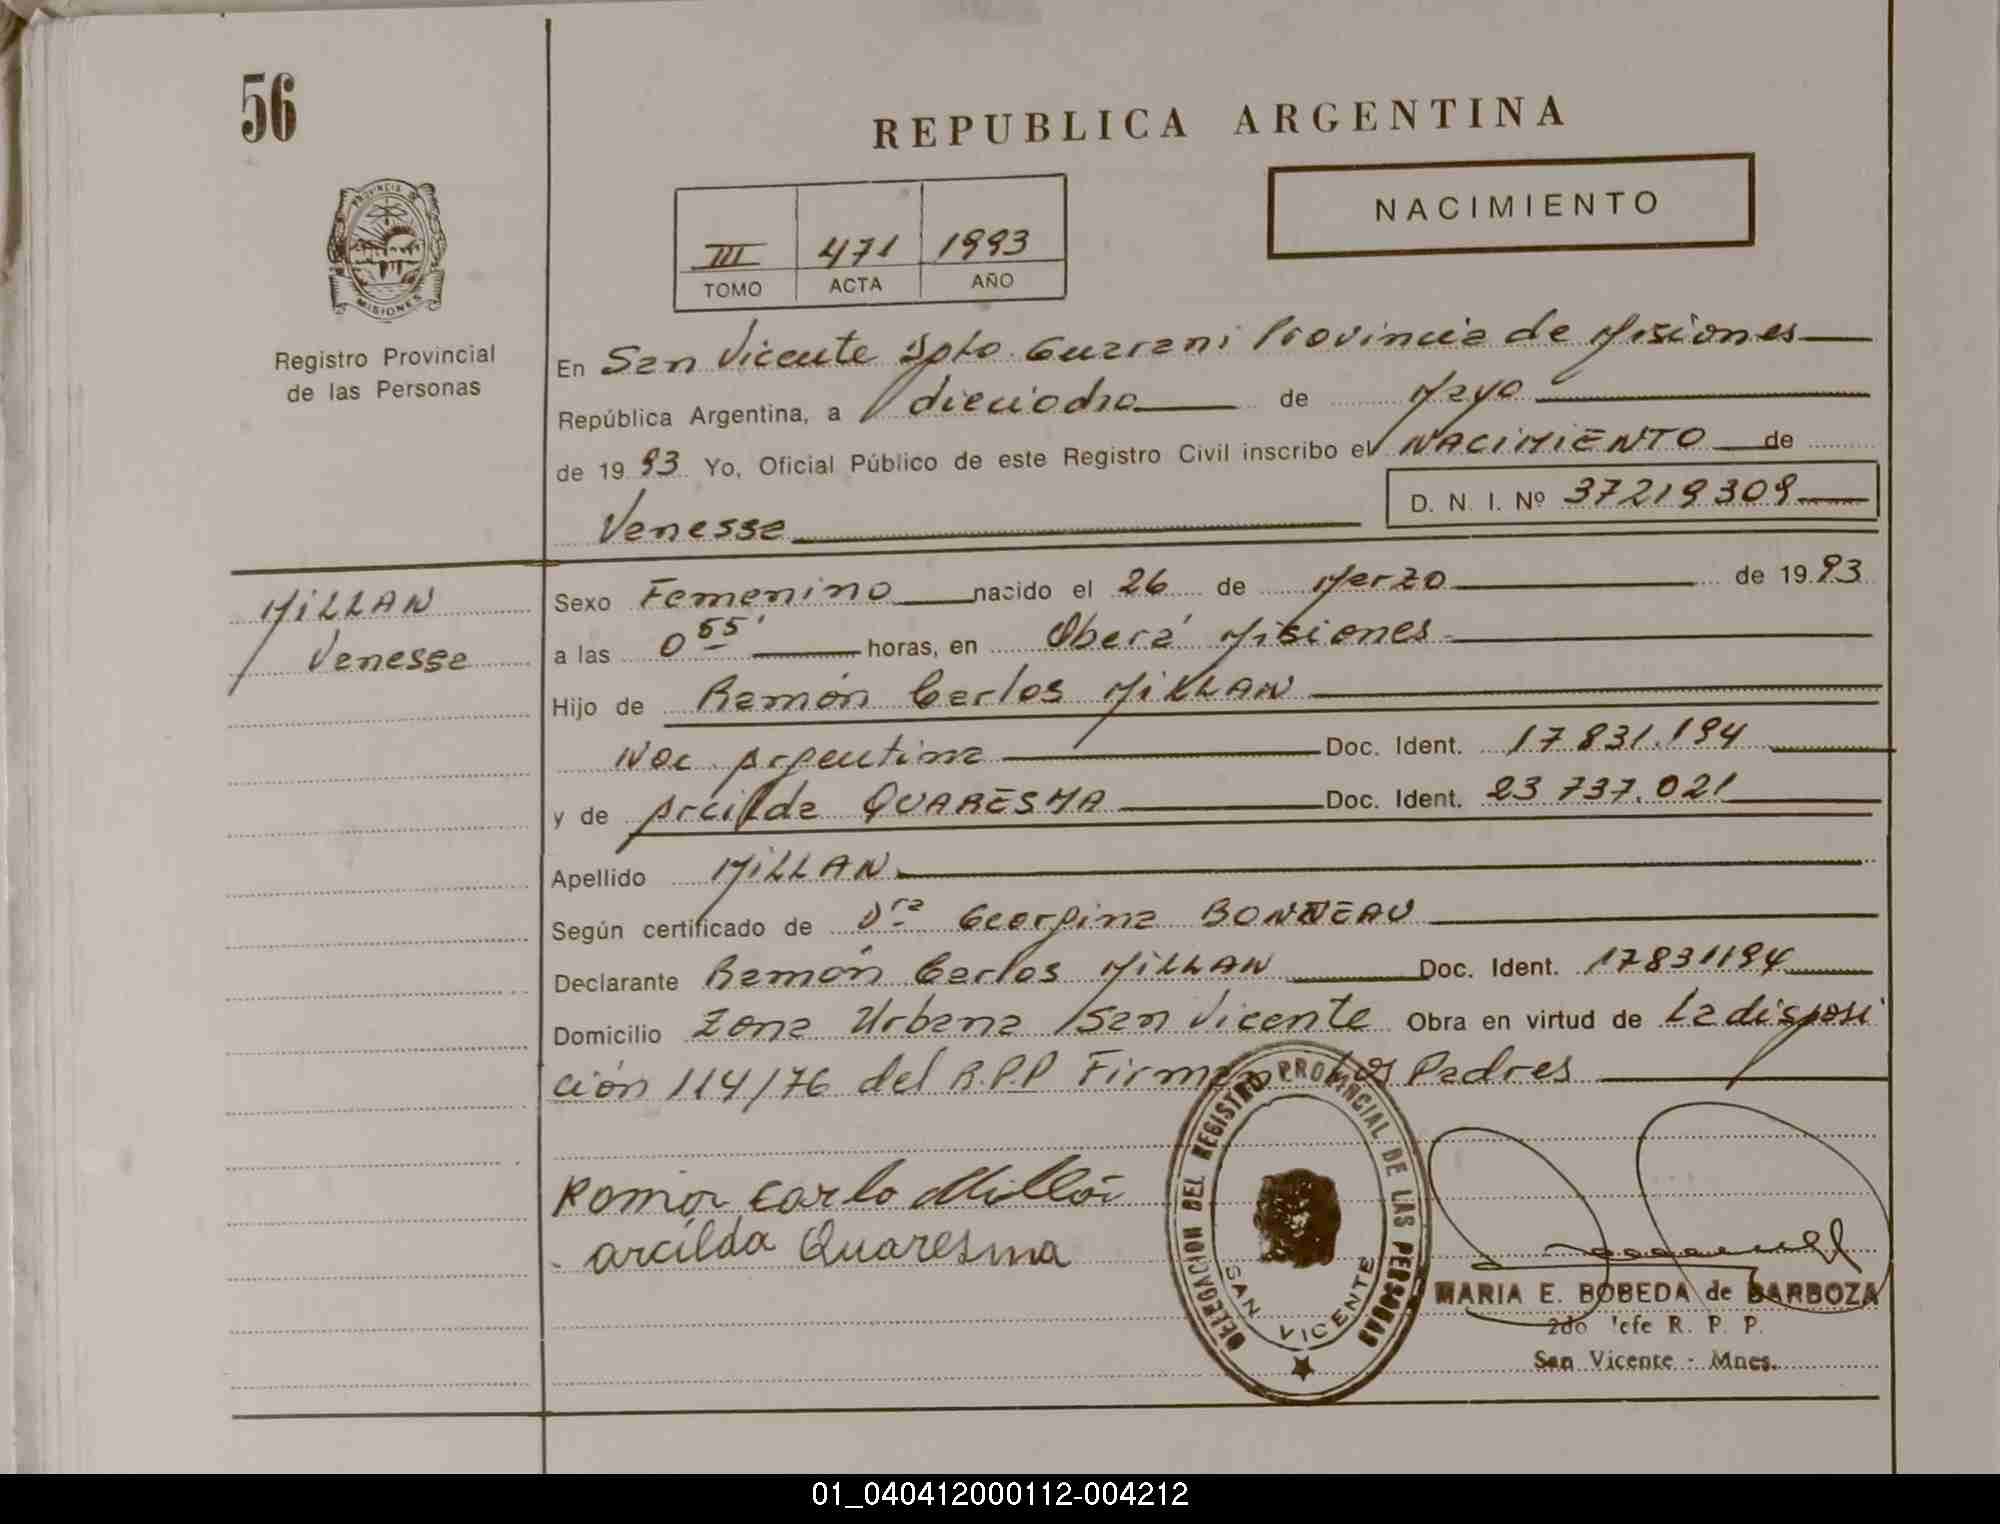 56
REPUBLICA ARGENTINA
NACIMIENTO
III 471 1993
TOMO ACTA AÑO
PROVINCIA DE MISIONES
Registro Provincial
de las Personas
En San Vicente Dpto. Guarani Provincia de Misiones
República Argentina, a dieciocho de Mayo
de 1993 Yo, Oficial Público de este Registro Civil inscribo el NACIMIENTO de
D. N. I. Nº 37219309
Vanessa
MILLAN
Vanessa
Sexo Femenino nacido el 26 de Marzo de 1993
a las 0 55' horas, en Oberá Misiones
Hijo de Ramón Carlos MILLAN
Nac. Argentina Doc. Ident. 17 831.194
y de Arcilda QUARESMA Doc. Ident. 23 737.021
Apellido MILLAN
Según certificado de Dra Georgina BONNEAU
Declarante Ramón Carlos MILLAN Doc. Ident. 17831194
Domicilio Zona Urbana San Vicente Obra en virtud de La disposi
ción 114/76 del R.P.P Firman Los Padres
Ramón Carlo Millán
arcilda Quaresma
DELEGACION DEL REGISTRO PROVINCIAL DE LAS PERSONAS
SAN VICENTE
MARIA E. BOBEDA de BARBOZA
2do Jefe R. P. P.
San Vicente - Mnes.
01_040412000112-004212